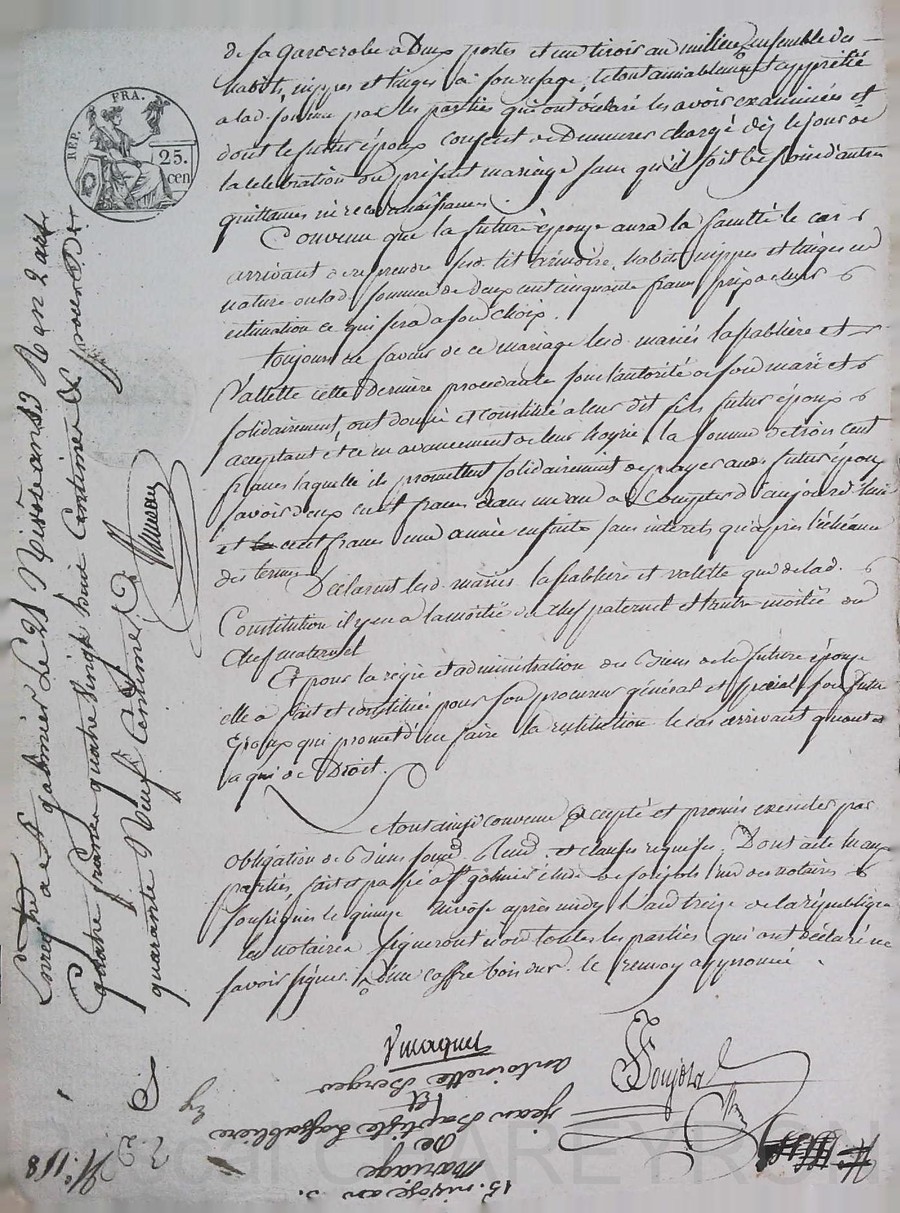 de sa garderobe à Deux portes et un tiroir au milieu, ensemble des
habits, nippes et linges à son usage, le tout amiablement apprécié
a lad. somme par les parties qui ont déclaré les avoir examinées et
dont le futur époux consent de Demeurer chargé dès le jour de
la celebration du présent mariage sans qu'il soit besoin d'autre
quittance ni reconnaissance.
Convenu que la future épouse aura la faculté le cas
arrivant de reprendre sesd. lit, armoire, habits nippes et linges en
nature ou lad. somme de deux cent cinquante francs prix de leur
estimation ce qui sera a son choix.
Toujours en faveur de ce mariage lesd. mariés lassablière et
Valette cette Dernière procedante sous l'autorité de son mari et
solidairement, ont donné et constitué a leur dit fils futur époux
acceptant et ce en avancement de leur hoyrie, la somme de trois cent
francs laquelle ils promettent solidairement de payer aud. futur époux
savoir deux cent francs dans un an a Compter d'aujourd'hui
et cent francs une année ensuite sans interets qu'après l'échéance
des termes.
Déclarent lesd. mariés lassablière et valette que de lad.
Constitution il y en a la moitié de chef paternel et l'autre moitié du
Chef maternel
Et pour la régie et administration des Biens de la future épouse
elle a fait et constitué pour son procureur général et special son futur
Epoux qui promet d'en faire la restitution le cas arrivant quand et
a qui de Droit.
tout ainsi convenu accepté et promis executer par
obligation de Biens et clauses requises. Dont acte aux
parties, fait et passé a St galmier étude de soujols l'un des notaires
soussignés le quinze Nivôse après midy L'an treize de la république
les notaires signeront et non toutes les parties qui ont déclaré ne
savoir signer. D'un coffre bois dur. le renvoy approuvé.
Soujols
REP. FRA.
25.
cen
Enregistré a St galmier Le 21 Nivôse an 13
quatre francs quatre vingt Centimes
quarante Neuf Centimes
N.° 118
15. nivôse an 13.
Mariage
De
jean Baptiste Lassabliere
Et
antoinette Berger